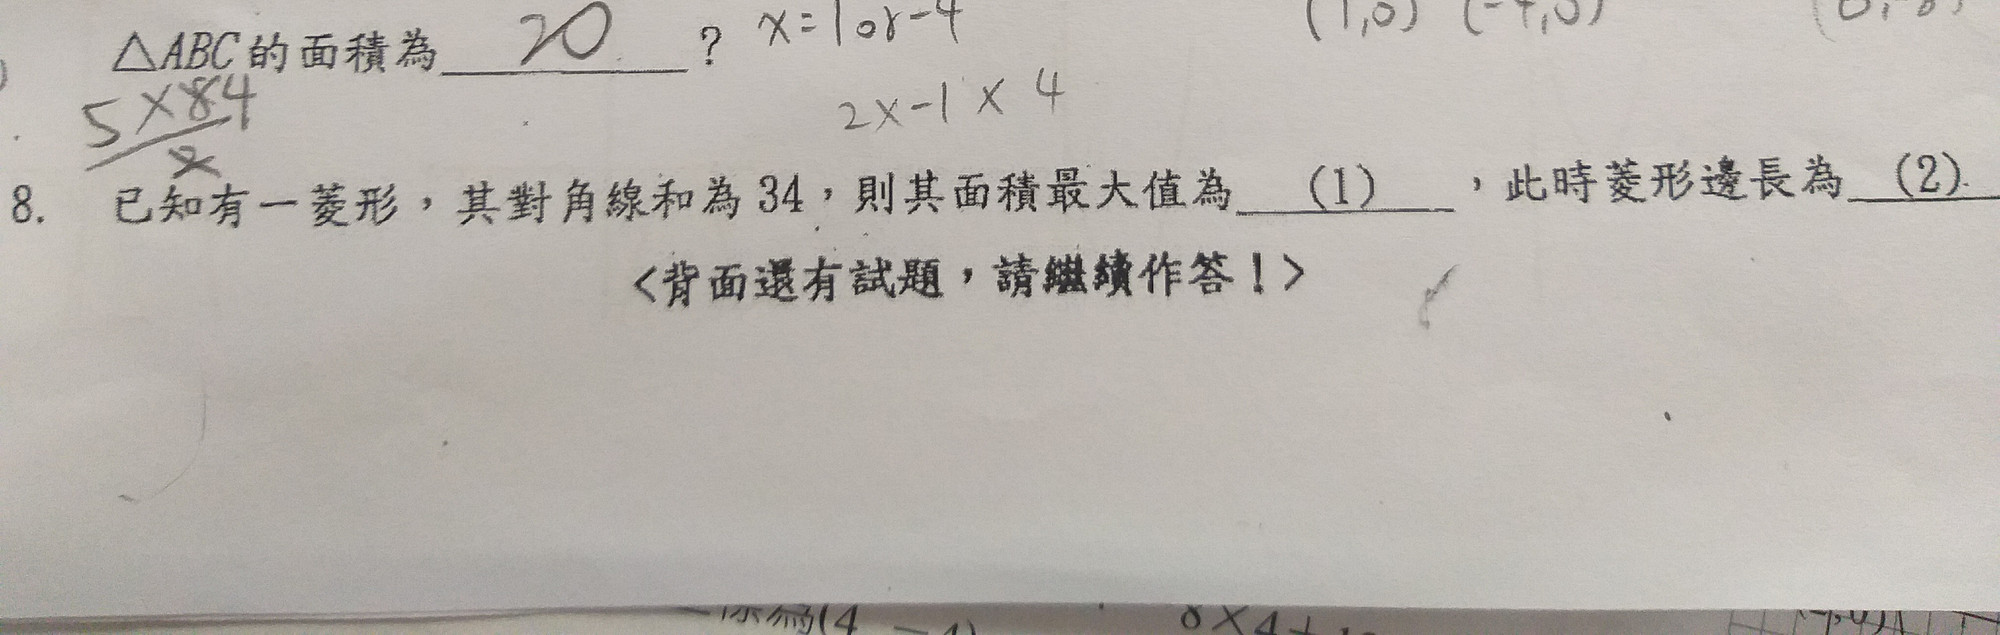 x=1or-4 (1,0) (-4,0)
△ABC的面積為 20 ?
5×84
2
2x-1×4
8. 已知有一菱形，其對角線和為34，則其面積最大值為 (1) ，此時菱形邊長為 (2)
<背面還有試題，請繼續作答！>